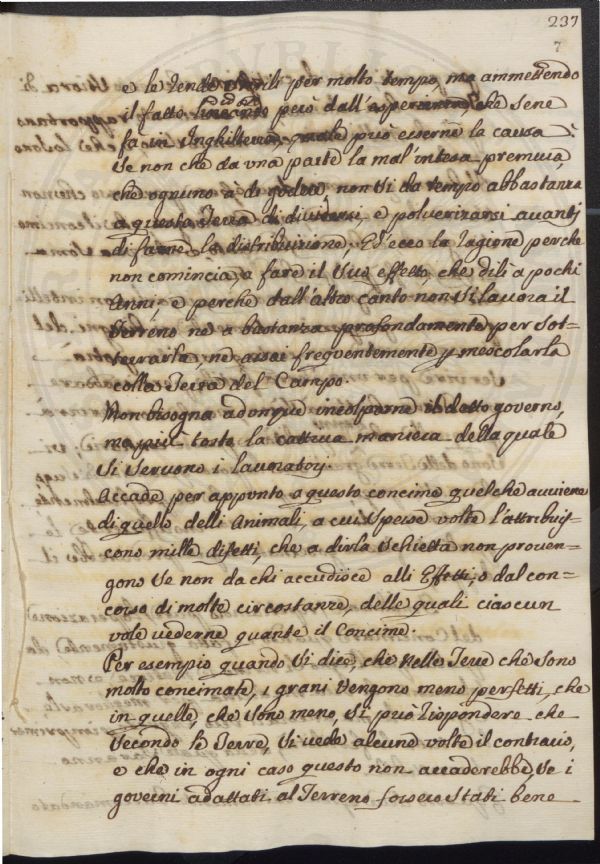 237
7
e le rende sterili per molto tempo, ma ammettendo
il fatto però dall'esperienza, che sene
fa in Inghilterra, quale può esserne la causa
se non che da una parte la mal'intesa premura,
che ognuno à di godere non si da tempo abbastanza
a questa Terra di dividersi, e polverizarsi avanti
di farne la distribuzione, Ed ecco la ragione perche
non comincia, a fare il suo effetto, che di li a pochi
Anni, e perche dall'altro canto non si lavora il
Terreno ne a bastanza profondamente per sot=
terrarla, ne assai frequentemente p mescolarla
colla Terra del Campo.
Non bisogna adonque incolparne il detto governo,
ma più tosto la cattiva maniera della quale
si servono i lavoratorj.
Accade per appunto a questo concime quel che avviene
di quello delli Animali, a cui spesse volte l'attribuis=
cono mille difetti, che a dirla schietta non proven=
gono se non da chi accudisce alli Effetti, o dal con=
corso di molte circostanze, delle quali ciascun
vole vederne quante il Concime.
Per esempio quando si dice, che nelle Terre che sono
molto concimate, i grani vengono meno perfetti, che
in quelle, che sono meno, si può rispondere che
secondo le Terre, si vede alcune volte il contrario,
e che in ogni caso questo non accaderebbe, se i
governi adattati al Terreno fossero stati bene